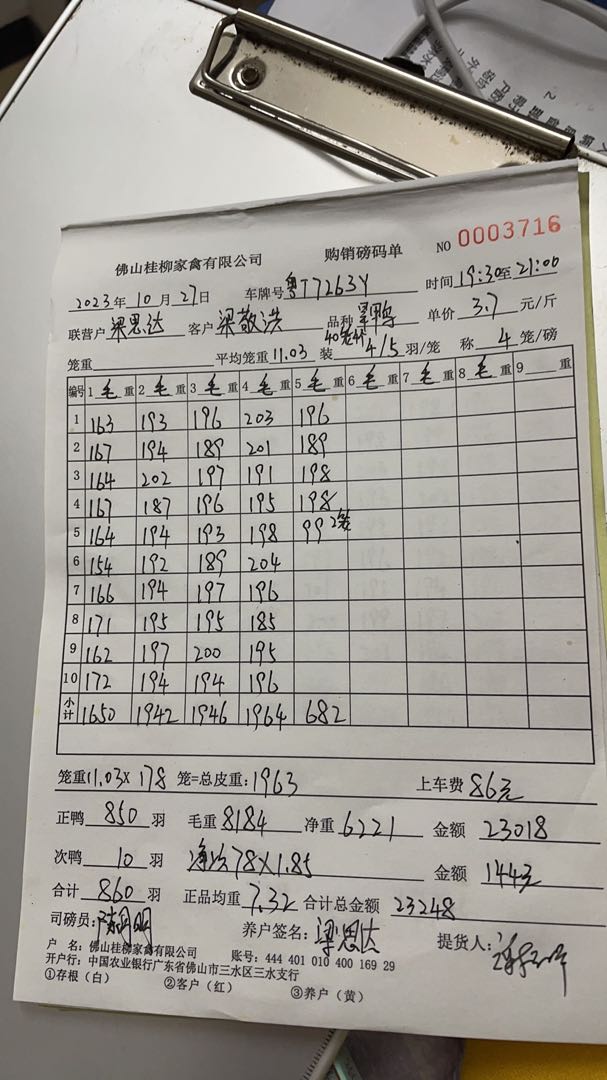 佛山桂柳家禽有限公司 购销磅码单 NO 0003716
2023年10月27日 车牌号粤T7263Y 时间19:30至21:00
联营户梁思达 客户梁敬洪 品种 单价3.7元/斤
笼重 平均笼重11.03 装4/5羽/笼 称4笼/磅
编号 1毛重 2毛重 3毛重 4毛重 5毛重 6毛重 7毛重 8毛重 9重
1 163 193 196 203 196
2 167 194 189 201 189
3 164 202 197 191 198
4 167 187 196 195 198
5 164 194 193 198 99 2笼
6 154 192 189 204
7 166 194 197 196
8 171 195 195 185
9 162 197 200 195
10 172 194 194 196
小计 1650 1942 1946 1964 682
笼重11.03×178笼=总皮重:1963 上车费86元
正鸭850羽 毛重8184 净重6221 金额23018
次鸭10羽 78×1.85 金额144元
合计860羽 正品均重7.32 合计总金额23248
司磅员: 养户签名:梁思达 提货人:
户 名:佛山桂柳家禽有限公司 账号:444 401 010 400 169 29
开户行:中国农业银行广东省佛山市三水区三水支行
①存根(白) ②客户(红) ③养户(黄)